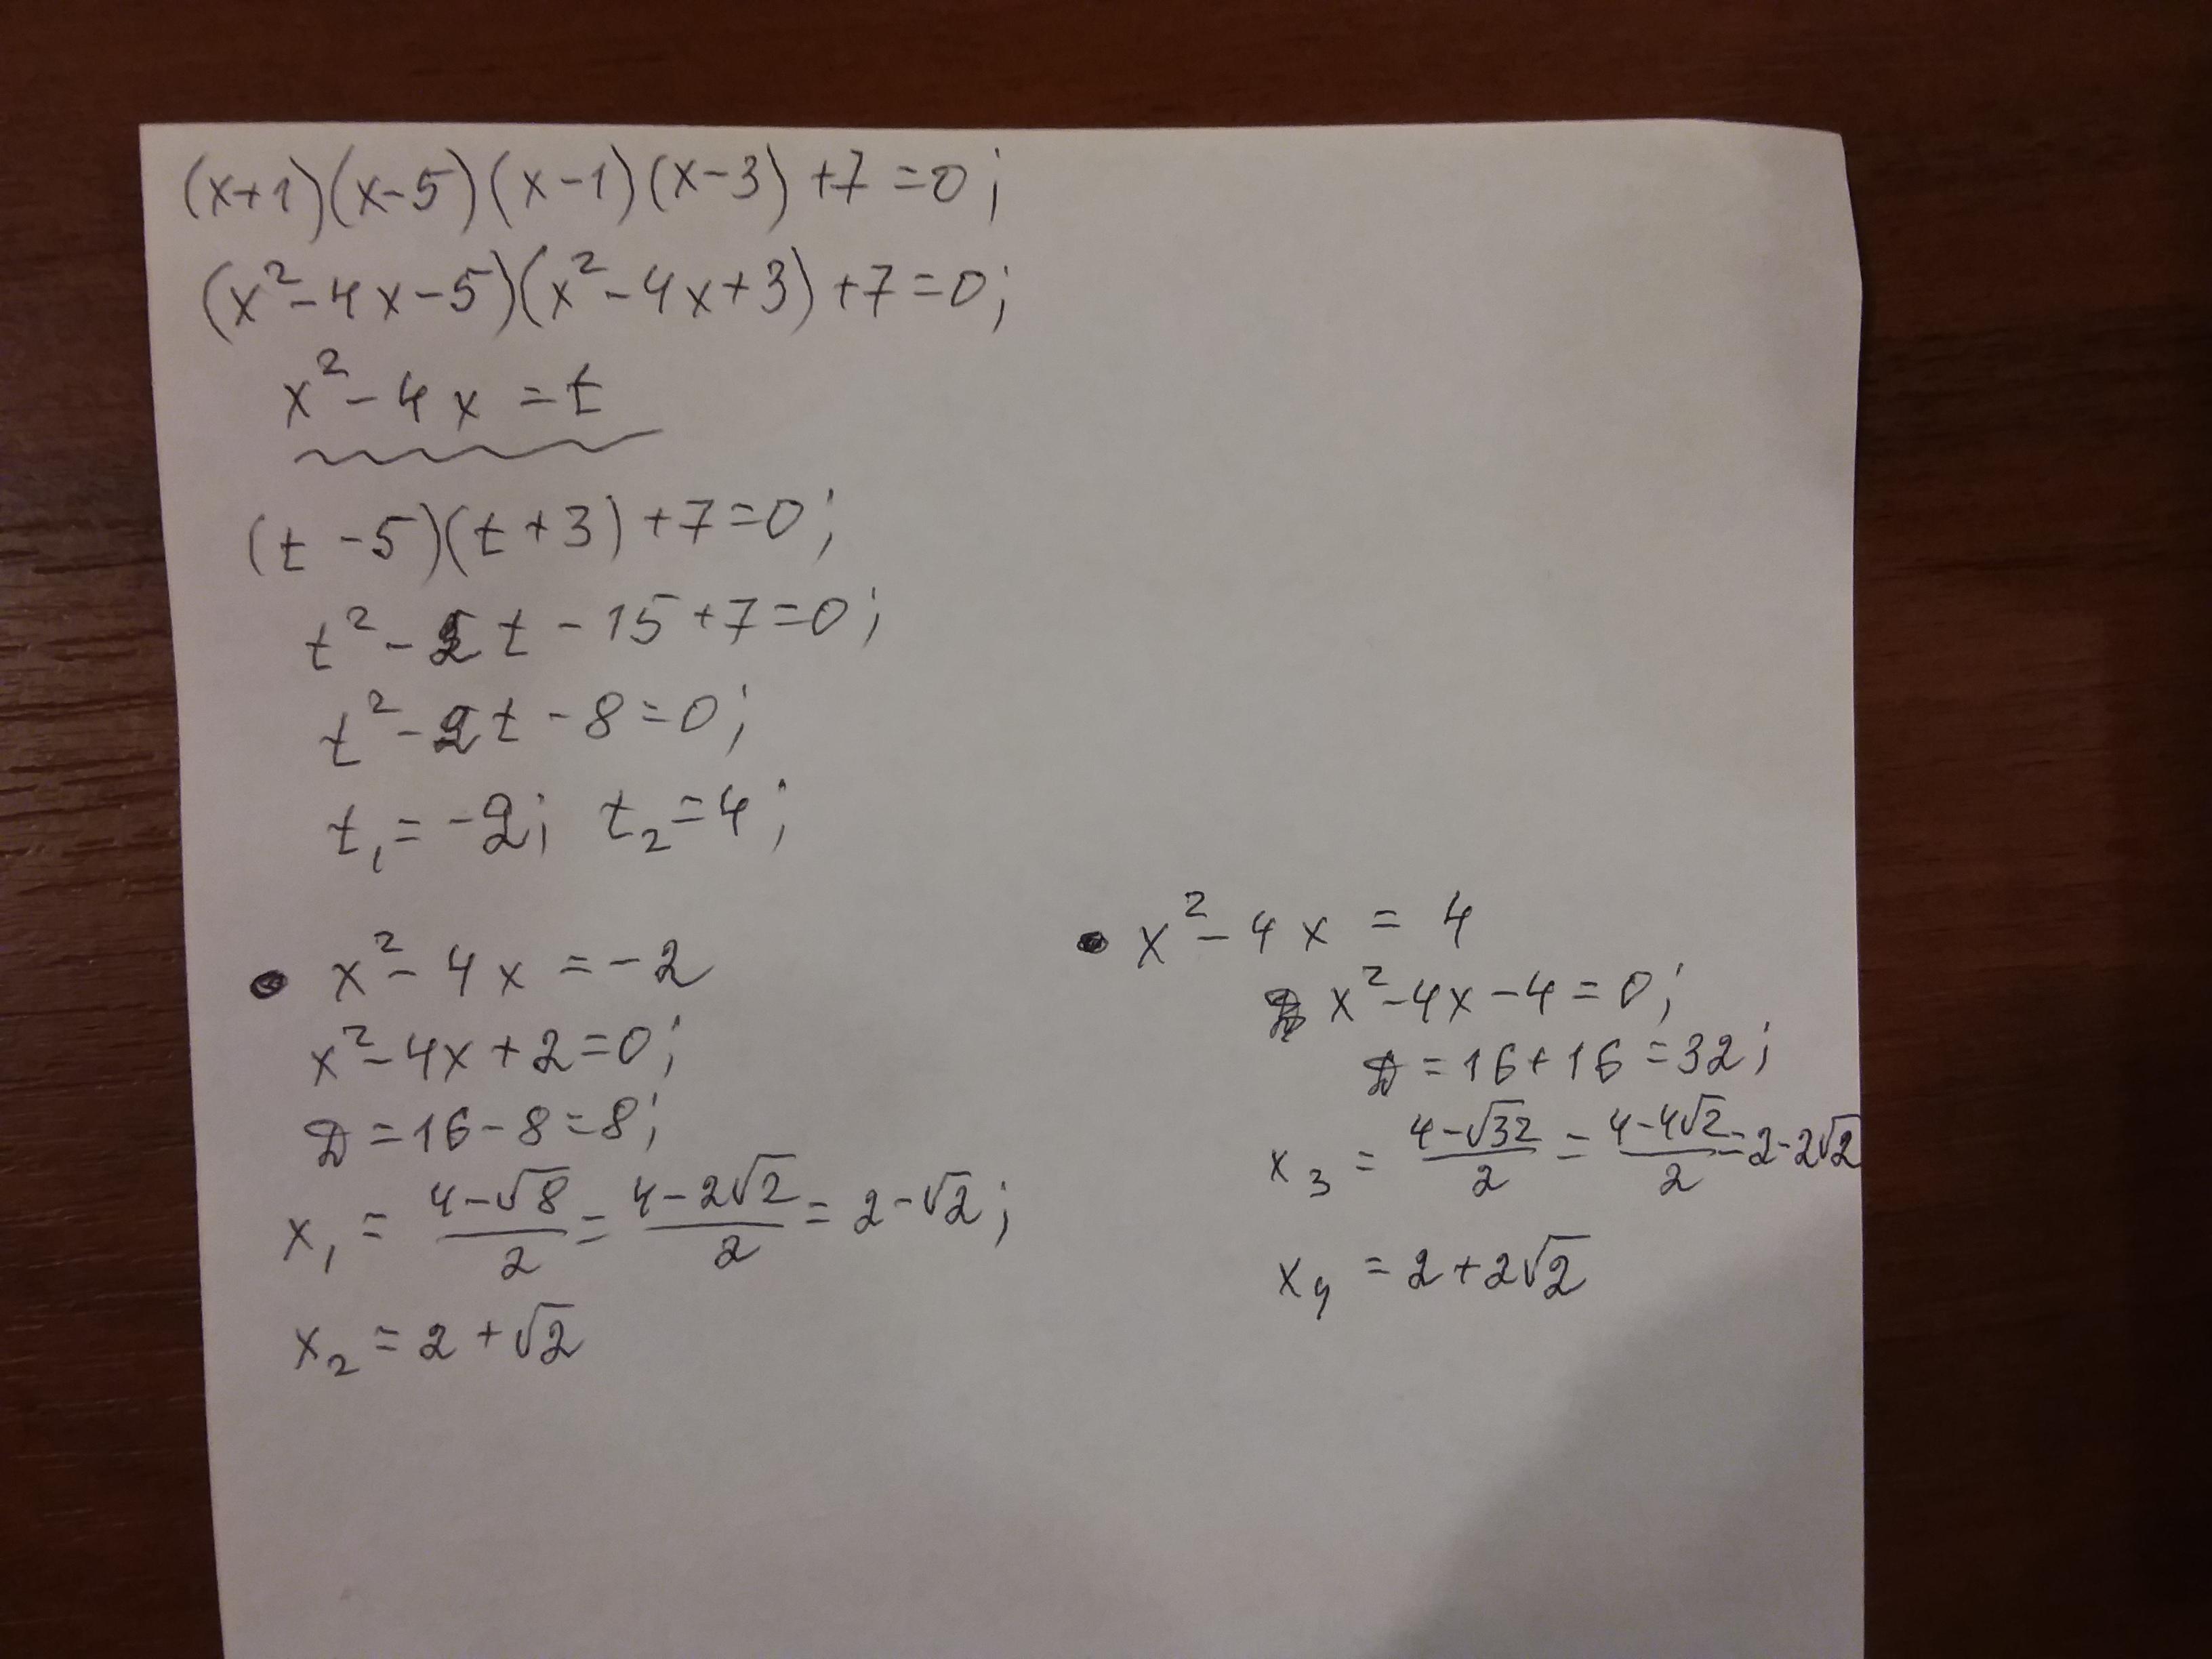 (x+1)(x-5)(x-1)(x-3)+7=0;
(x²-4x-5)(x²-4x+3)+7=0;
x²-4x=t
(t-5)(t+3)+7=0;
t²-2t-15+7=0;
t²-2t-8=0;
t₁=-2; t₂=4;
• x²-4x=-2
x²-4x+2=0;
D=16-8=8;
x₁ = (4-√8)/2 = (4-2√2)/2 = 2-√2;
x₂ = 2+√2
• x²-4x = 4
x²-4x-4=0;
D=16+16=32;
x₃ = (4-√32)/2 = (4-4√2)/2 = 2-2√2
x₄ = 2+2√2